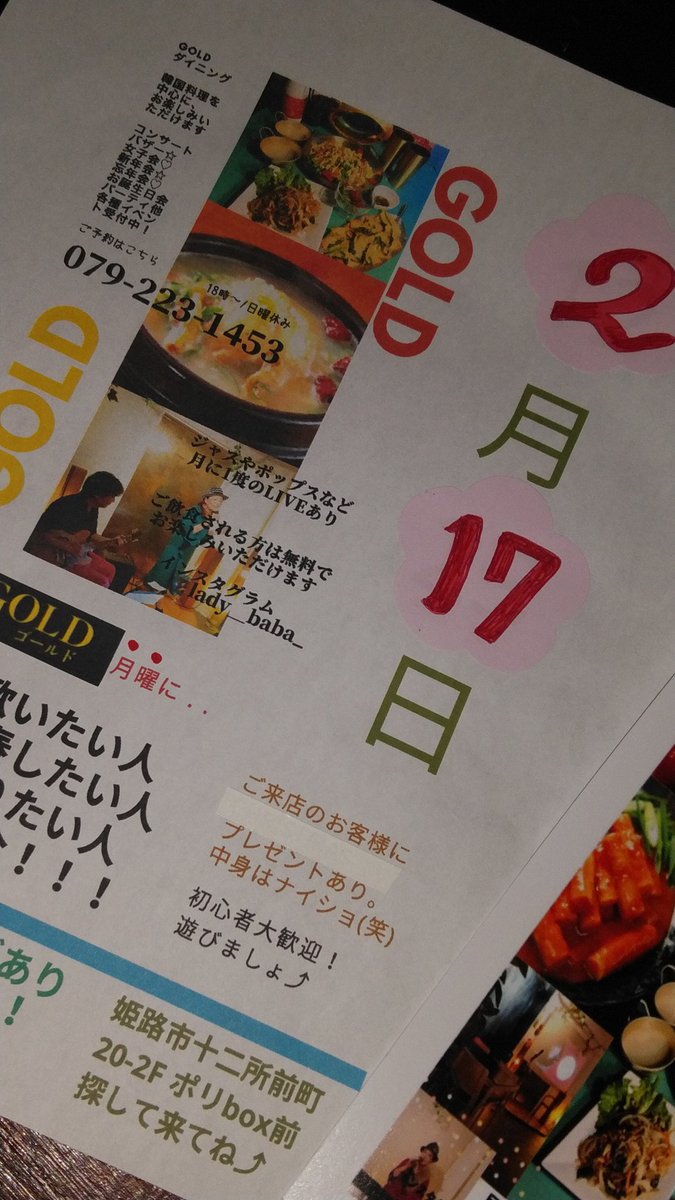 GOLD
ダイニング
韓国料理を
中心に、
お楽しみい
ただけます
コンサート
バザー☆
女子会♡
新年会☆
忘年会♡
お誕生日会
パーティ他
各種イベン
ト受付中！
ご予約はこちら
079-223-1453
18時〜/日曜休み
GOLD
GOLD
2
月
17
日
ジャズやポップスなど
月に1度のLIVEあり
ご飲食される方は無料で
お楽しみいただけます
インスタグラム
lady__baba_
GOLD
ゴールド
月曜に..
歌いたい人
奏したい人
りたい人
！！！
ご来店のお客様に
プレゼントあり。
中身はナイショ(笑)
初心者大歓迎！
遊びましょ⤴
あり
！
姫路市十二所前町
20-2F ポリbox前
探して来てね⤴